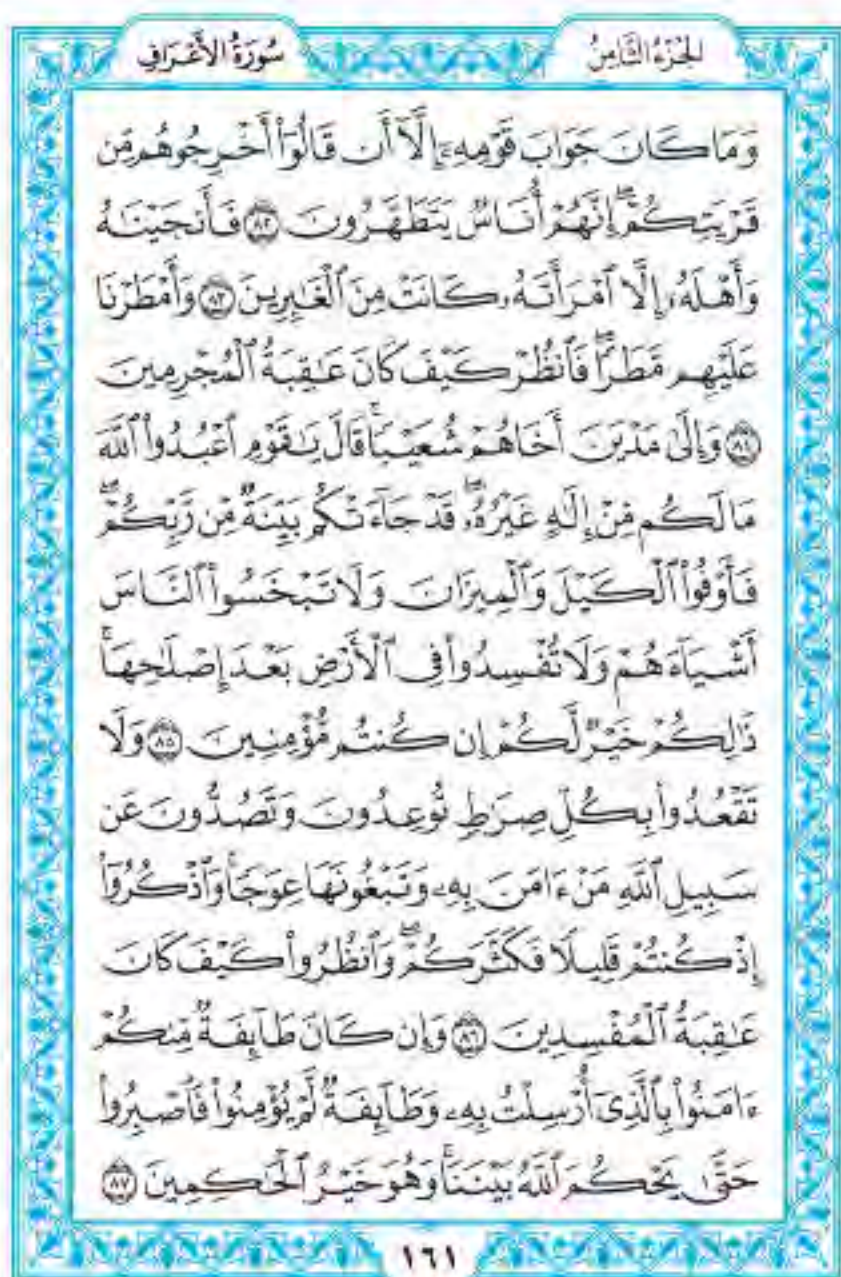 الجُزْءُ الثَّامِنُ
سُورَةُ الأَعْرَافِ
وَمَا كَانَ جَوَابَ قَوْمِهِۦٓ إِلَّآ أَن قَالُوٓا۟ أَخْرِجُوهُم مِّن
قَرْيَتِكُمْ ۖ إِنَّهُمْ أُنَاسٌ يَتَطَهَّرُونَ ٨٢ فَأَنجَيْنَـٰهُ
وَأَهْلَهُۥٓ إِلَّا ٱمْرَأَتَهُۥ كَانَتْ مِنَ ٱلْغَـٰبِرِينَ ٨٣ وَأَمْطَرْنَا
عَلَيْهِم مَّطَرًا ۖ فَٱنظُرْ كَيْفَ كَانَ عَـٰقِبَةُ ٱلْمُجْرِمِينَ
٨٤ وَإِلَىٰ مَدْيَنَ أَخَاهُمْ شُعَيْبًا ۗ قَالَ يَـٰقَوْمِ ٱعْبُدُوا۟ ٱللَّهَ
مَا لَكُم مِّنْ إِلَـٰهٍ غَيْرُهُۥ ۖ قَدْ جَآءَتْكُم بَيِّنَةٌ مِّن رَّبِّكُمْ ۖ
فَأَوْفُوا۟ ٱلْكَيْلَ وَٱلْمِيزَانَ وَلَا تَبْخَسُوا۟ ٱلنَّاسَ
أَشْيَآءَهُمْ وَلَا تُفْسِدُوا۟ فِى ٱلْأَرْضِ بَعْدَ إِصْلَـٰحِهَا ۚ
ذَٰلِكُمْ خَيْرٌ لَّكُمْ إِن كُنتُم مُّؤْمِنِينَ ٨٥ وَلَا
تَقْعُدُوا۟ بِكُلِّ صِرَٰطٍ تُوعِدُونَ وَتَصُدُّونَ عَن
سَبِيلِ ٱللَّهِ مَنْ ءَامَنَ بِهِۦ وَتَبْغُونَهَا عِوَجًا ۚ وَٱذْكُرُوٓا۟
إِذْ كُنتُمْ قَلِيلًا فَكَثَّرَكُمْ ۖ وَٱنظُرُوا۟ كَيْفَ كَانَ
عَـٰقِبَةُ ٱلْمُفْسِدِينَ ٨٦ وَإِن كَانَ طَآئِفَةٌ مِّنكُمْ
ءَامَنُوا۟ بِٱلَّذِىٓ أُرْسِلْتُ بِهِۦ وَطَآئِفَةٌ لَّمْ يُؤْمِنُوا۟ فَٱصْبِرُوا۟
حَتَّىٰ يَحْكُمَ ٱللَّهُ بَيْنَنَا ۚ وَهُوَ خَيْرُ ٱلْحَـٰكِمِينَ ٨٧
١٦١